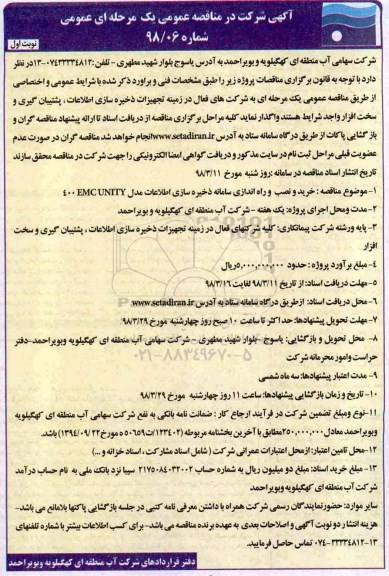 آگهی شرکت در مناقصه عمومی یک مرحله ای عمومی
شماره ۹۸/۰۶
نوبت اول
شرکت سهامی آب منطقه ای کهگیلویه و بویراحمد به آدرس یاسوج بلوار شهید مطهری - تلفن: ۱۳-۰۷۴۳۳۳۳۴۸۱۲ در نظر
دارد با توجه به قانون برگزاری مناقصات پروژه زیر را طبق مشخصات فنی و برآورد ذکر شده با شرایط عمومی و اختصاصی
از طریق مناقصه عمومی یک مرحله ای به شرکت های فعال در زمینه تجهیزات ذخیره سازی اطلاعات ، پشتیبان گیری و
سخت افزار واجد شرایط هستند واگذار نماید کلیه مراحل برگزاری مناقصه از دریافت اسناد تا ارائه پیشنهاد مناقصه گران و
بازگشایی پاکات از طریق درگاه سامانه ستاد به آدرس www.setadiran.ir انجام خواهد شد مناقصه گران در صورت عدم
عضویت قبلی مراحل ثبت نام در سایت مذکور و دریافت گواهی امضا الکترونیکی را جهت شرکت در مناقصه محقق سازند
تاریخ انتشار اسناد مناقصه در سامانه :روز شنبه مورخ ۹۸/۳/۱۱
۱-موضوع مناقصه : خرید و نصب و راه اندازی سامانه ذخیره سازی اطلاعات مدل EMC UNITY ۴۰۰
۲-مدت ومحل اجرای پروژه: یک هفته - شرکت آب منطقه ای کهگیلویه و بویراحمد
۳- پایه ورشته شرکت پیمانکاری: کلیه شرکتهای فعال در زمینه تجهیزات ذخیره سازی اطلاعات ، پشتیبان گیری و سخت
افزار
۴-مبلغ برآورد پروژه : حدود ۵,۰۰۰,۰۰۰,۰۰۰ ریال
۵-مهلت دریافت اسناد: از تاریخ ۹۸/۳/۱۱ لغایت ۹۸/۳/۱۶
۶- محل دریافت اسناد: از طریق درگاه سامانه ستاد به آدرس www.setadiran.ir
۷-مهلت تحویل پیشنهادها: حداکثر تا ساعت ۱۰ صبح روز چهارشنبه مورخ ۹۸/۳/۲۹
۸- محل تحویل و بازگشایی: یاسوج -بلوار شهید مطهری - شرکت سهامی آب منطقه ای کهگیلویه وبویراحمد-دفتر
حراست وامور محرمانه شرکت
۹- مدت اعتبار پیشنهادها: سه ماه شمسی
۱۰- تاریخ و زمان بازگشایی پیشنهادها: ساعت ۱۱ روز چهارشنبه مورخ ۹۸/۳/۲۹
۱۱-نوع ومبلغ تضمین شرکت در فرآیند ارجاع کار : ضمانت نامه بانکی به نفع شرکت سهامی آب منطقه ای کهگیلویه
وبویراحمد معادل ۲۵۰,۰۰۰,۰۰۰ مطابق با آخرین بخشنامه مربوطه (۱۲۳۴۰۲/ت۵۰۶۵۹ ه مورخ ۱۳۹۴/۰۹/۲۲) باشد.
۱۲-محل تامین اعتبار: از محل اعتبارات عمرانی شرکت (شامل اسناد مشارکت، اسناد خزانه و ...)
۱۳- مبلغ خرید اسناد: مبلغ دو میلیون ریال به شماره حساب ۲۱۷۵۰۸۴۰۳۲۰۰۲ سیبا نزد بانک ملی به نام حساب درآمد
شرکت آب منطقه ای کهگیلویه وبویراحمد
سایر موارد: حضور نمایندگان رسمی شرکت همراه با داشتن معرفی نامه کتبی در جلسه بازگشایی پاکتها بلامانع می باشد-
هزینه انتشار دو نوبت آگهی و اصلاحات بعدی به عهده برنده مناقصه می باشد- برای کسب اطلاعات بیشتر با شماره تلفنهای
۱۳-۳۳۳۳۴۸۱۲-۰۷۴ تماس حاصل فرمایید.
دفتر قراردادهای شرکت آب منطقه ای کهگیلویه وبویراحمد
۰۲۱-۸۸۳۴۹۶۷۰-۵